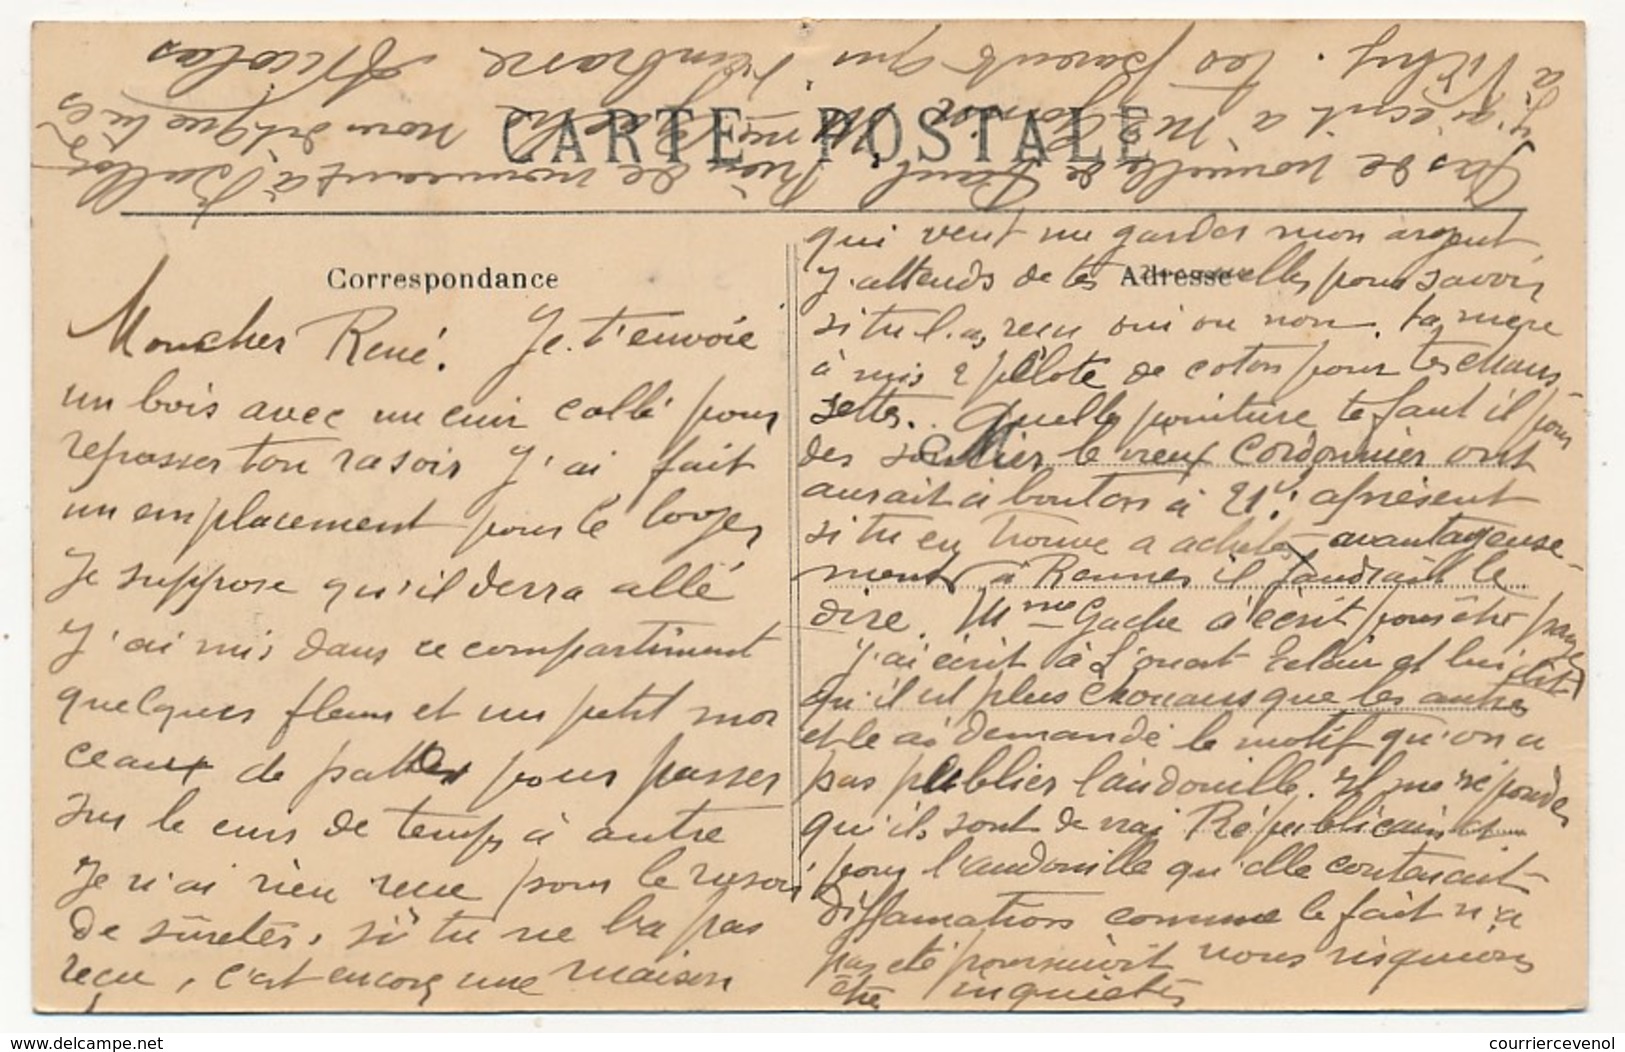 CARTE POSTALE
Correspondance
Mon cher René. Je t'envoie
un bois avec un cuir collé pour
repasser ton rasoir J'ai fait
un emplacement pour le loger
Je suppose qu'il devra allé
J'ai mis dans ce compartiment
quelques fleurs et un petit mor
ceaux de patte pour passer
sur le cuir de temps à autre
Je n'ai rien recu pour le rasoir
de sûretés, si tu ne l'a pas
reçu, c'est encore une maison
Adresse
qui veut me garder mon argent
J'attends de tes nouvelles pour savoir
si tu l'as recu oui ou non. ta mère
à mis 2 pelote de coton pour tes chaus
settes. Quelle pointure te faut il pour
des soulier le vieux Cordonnier ont
aurait à bouton à 21f. apresent
si tu en trouve a acheter avantageuse-
ment à Rennes il faudrait le
dire. Mme Gache a écrit pour être payer
J'ai écrit à L'ouest Eclair et lui dit
qu'il est plus Chouans que les autres
et le ai demandé le motif qu'on a
pas publier l'andouille. Il me réponde
qu'ils sont de vrai Républicain et
pour l'andouille qu'elle contenait
diffamations comme le fait n'a
pas été poursuivit nous risquions
être inquiétés
Pas de nouvelle de Paul. Rien de nouveaux à Ballots
J'ai écrit à Mlle Mme Gache nous dit que tu es
à Vitry. Tes parents qui t'embrasse Nicolas
courriercevenol.net
courriercevenol